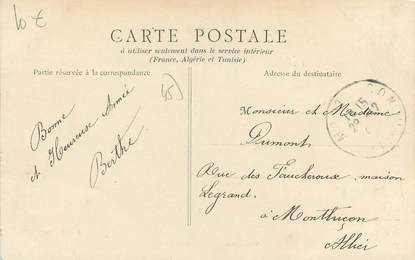 10 €
CARTE POSTALE
à utiliser seulement dans le service intérieur
(France, Algérie et Tunisie)
Partie réservée à la correspondance
Adresse du destinataire
Bonne
et Heureuse Année
Berthe
Monsieur et Madame
Dumont
Rue des Faucheroux maison
Legrand.
à Montluçon
Allier